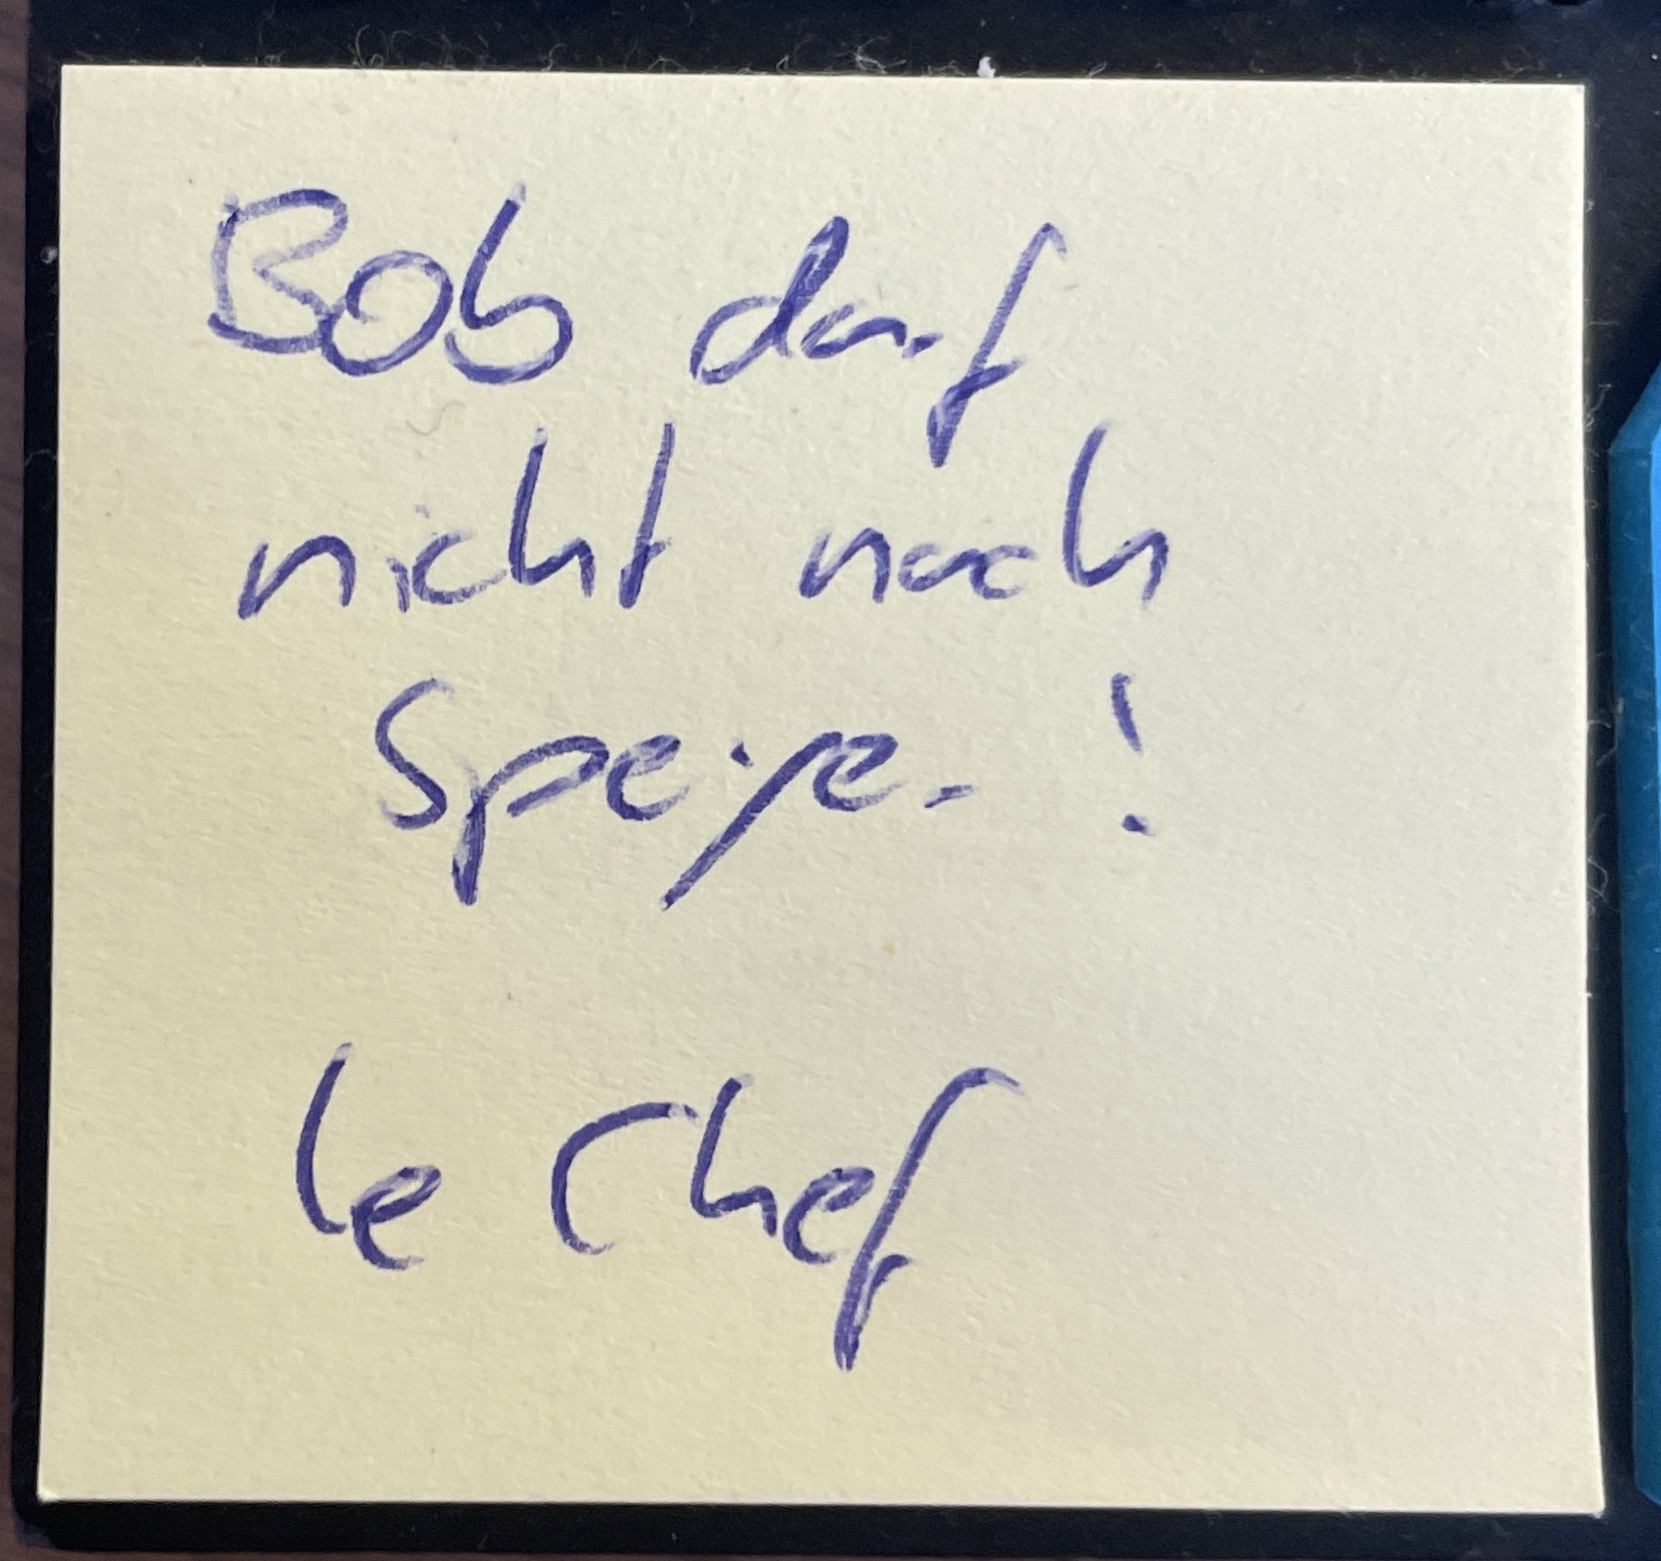 Bob darf
nicht nach
Speyer !
le Chef